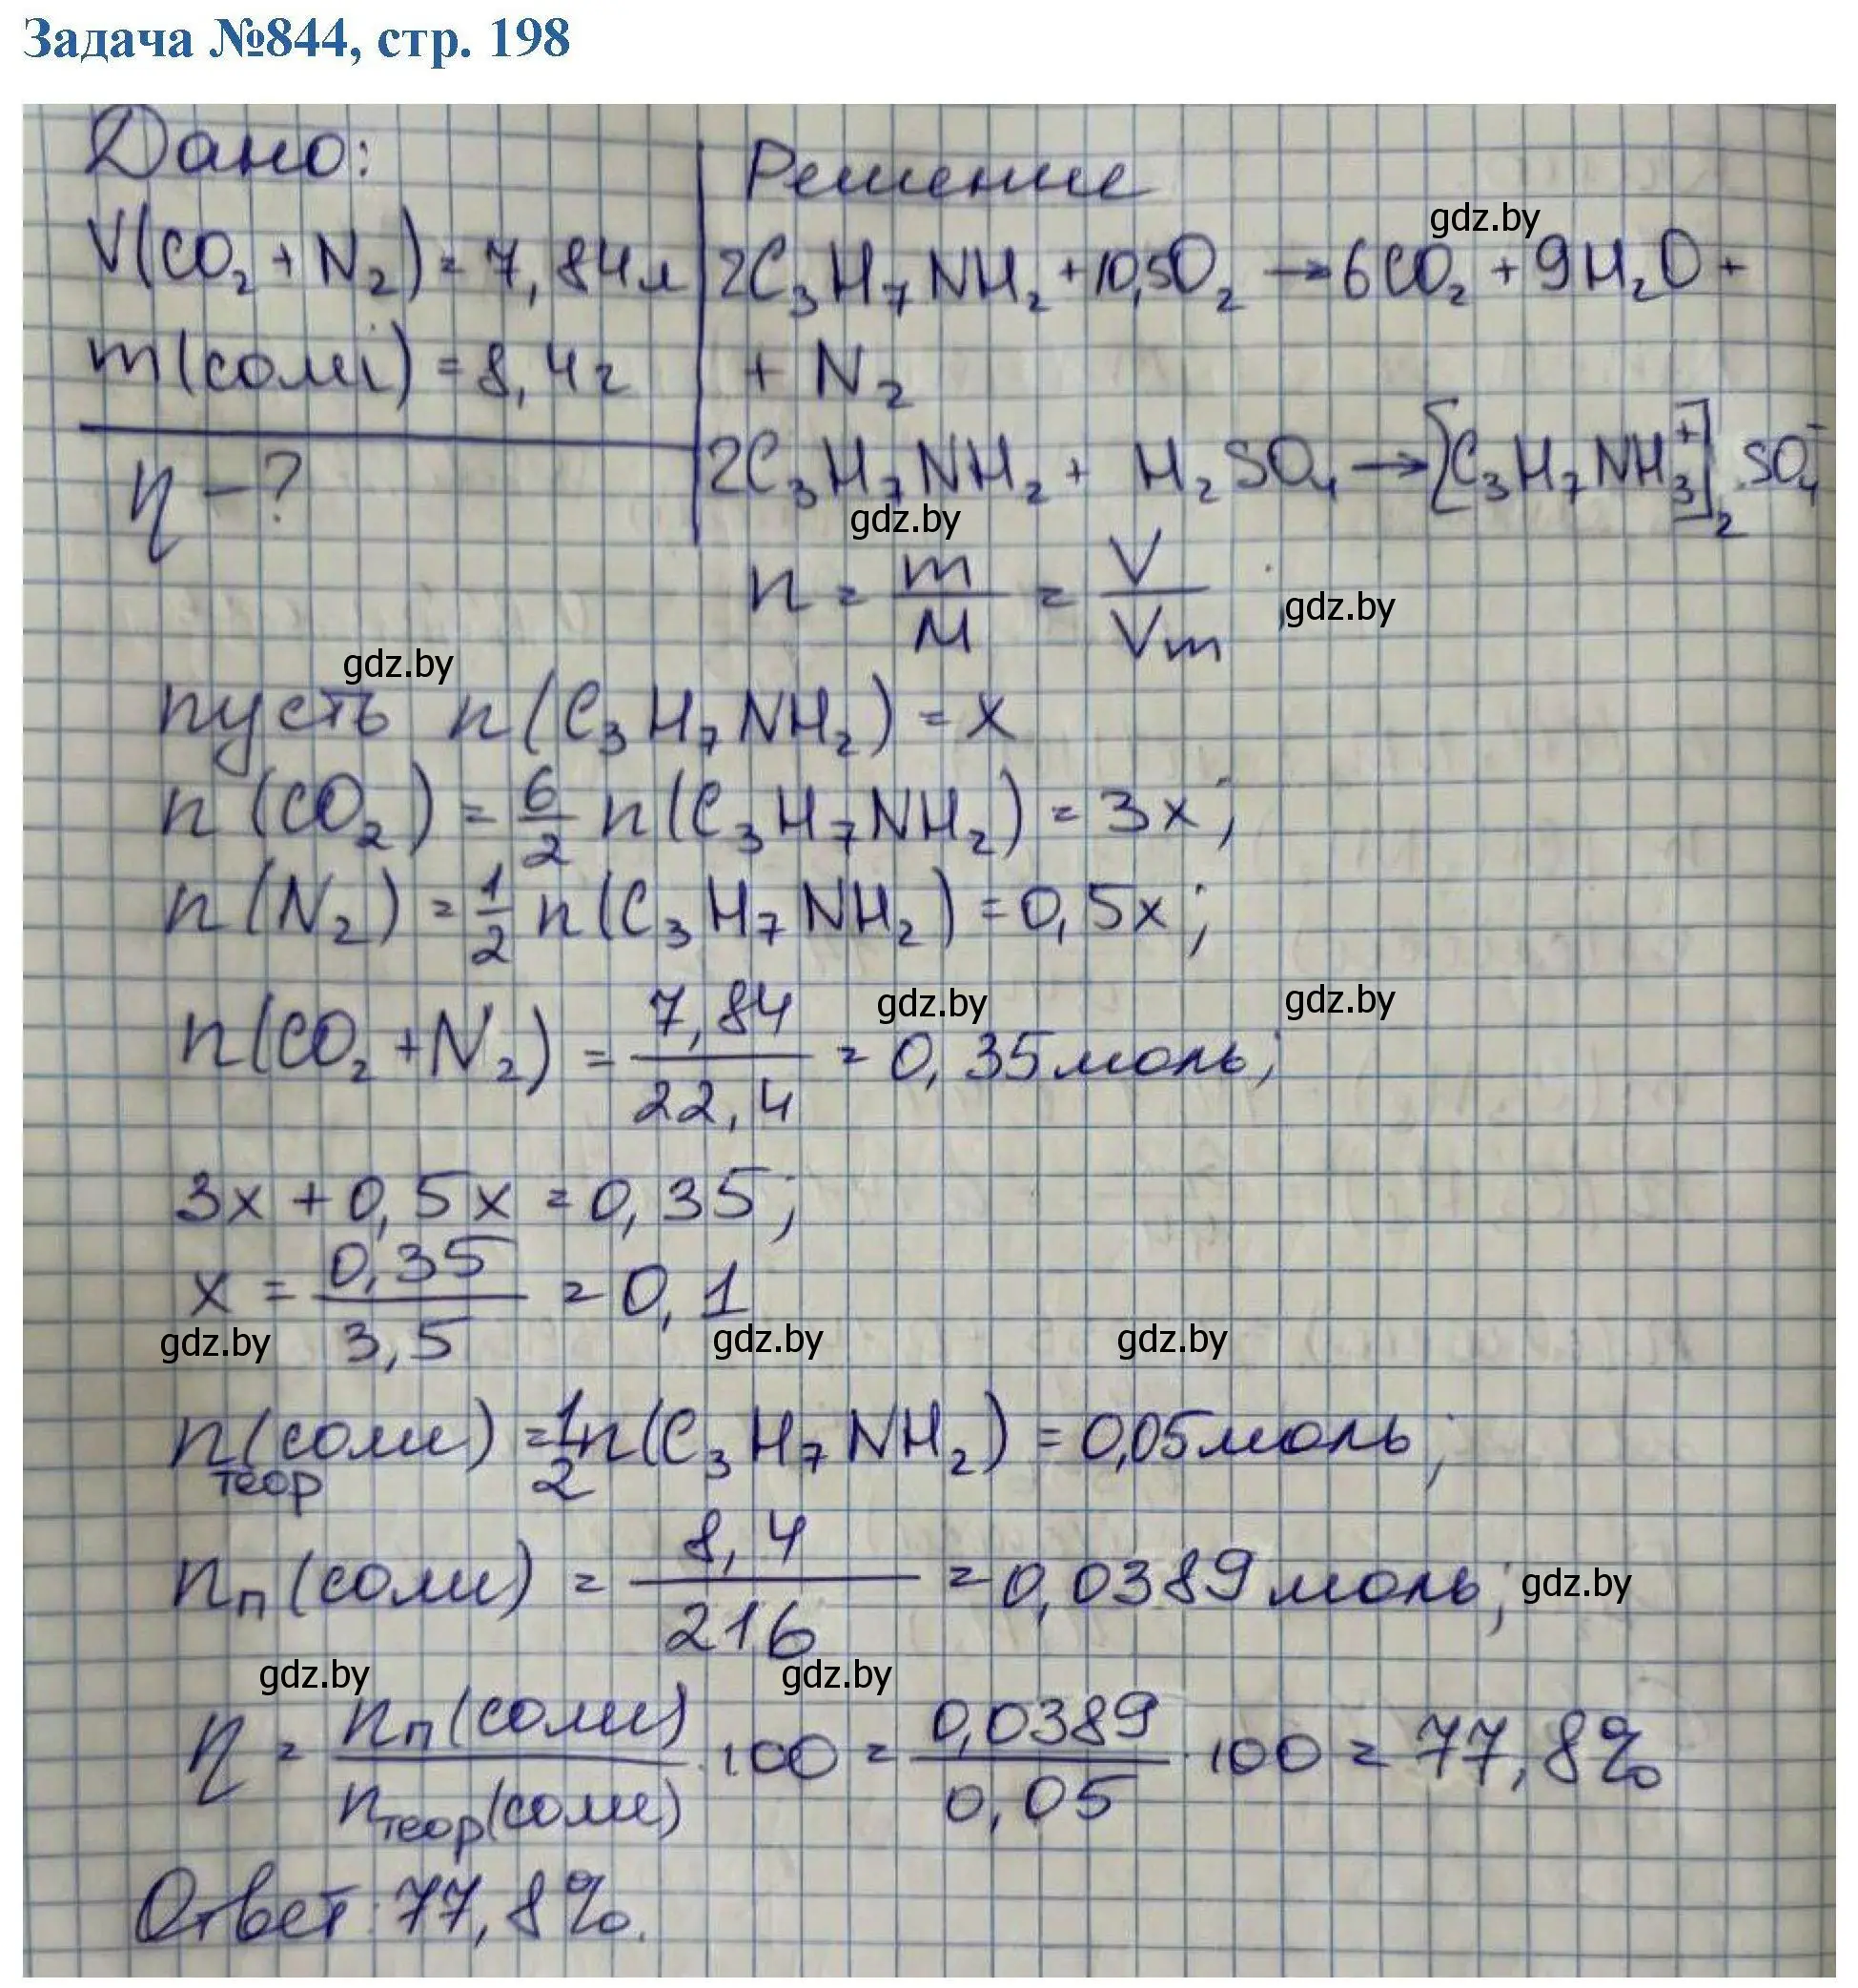 Задача №844, стр. 198
Дано:
V(CO₂ + N₂) = 7,84л
m(соли) = 8,4г
η - ?
Решение
gdz.by
2C₃H₇NH₂ + 10,5O₂ → 6CO₂ + 9H₂O +
+ N₂
2C₃H₇NH₂ + H₂SO₄ → [C₃H₇NH₃⁺]₂ SO₄⁻
gdz.by
n = m/M = V/Vm
gdz.by
gdz.by
пусть n(C₃H₇NH₂) = x
n(CO₂) = 6/2 n(C₃H₇NH₂) = 3x;
n(N₂) = 1/2 n(C₃H₇NH₂) = 0,5x;
gdz.by gdz.by
n(CO₂ + N₂) = 7,84/22,4 = 0,35 моль;
3x + 0,5x = 0,35;
x = 0,35/3,5 = 0,1
gdz.by gdz.by gdz.by
n теор (соли) = 1/2 n(C₃H₇NH₂) = 0,05 моль;
nп(соли) = 8,4/216 = 0,0389 моль; gdz.by
gdz.by gdz.by
η = nп(соли)/nтеор(соли) · 100 = 0,0389/0,05 · 100 = 77,8%
Ответ: 77,8%.